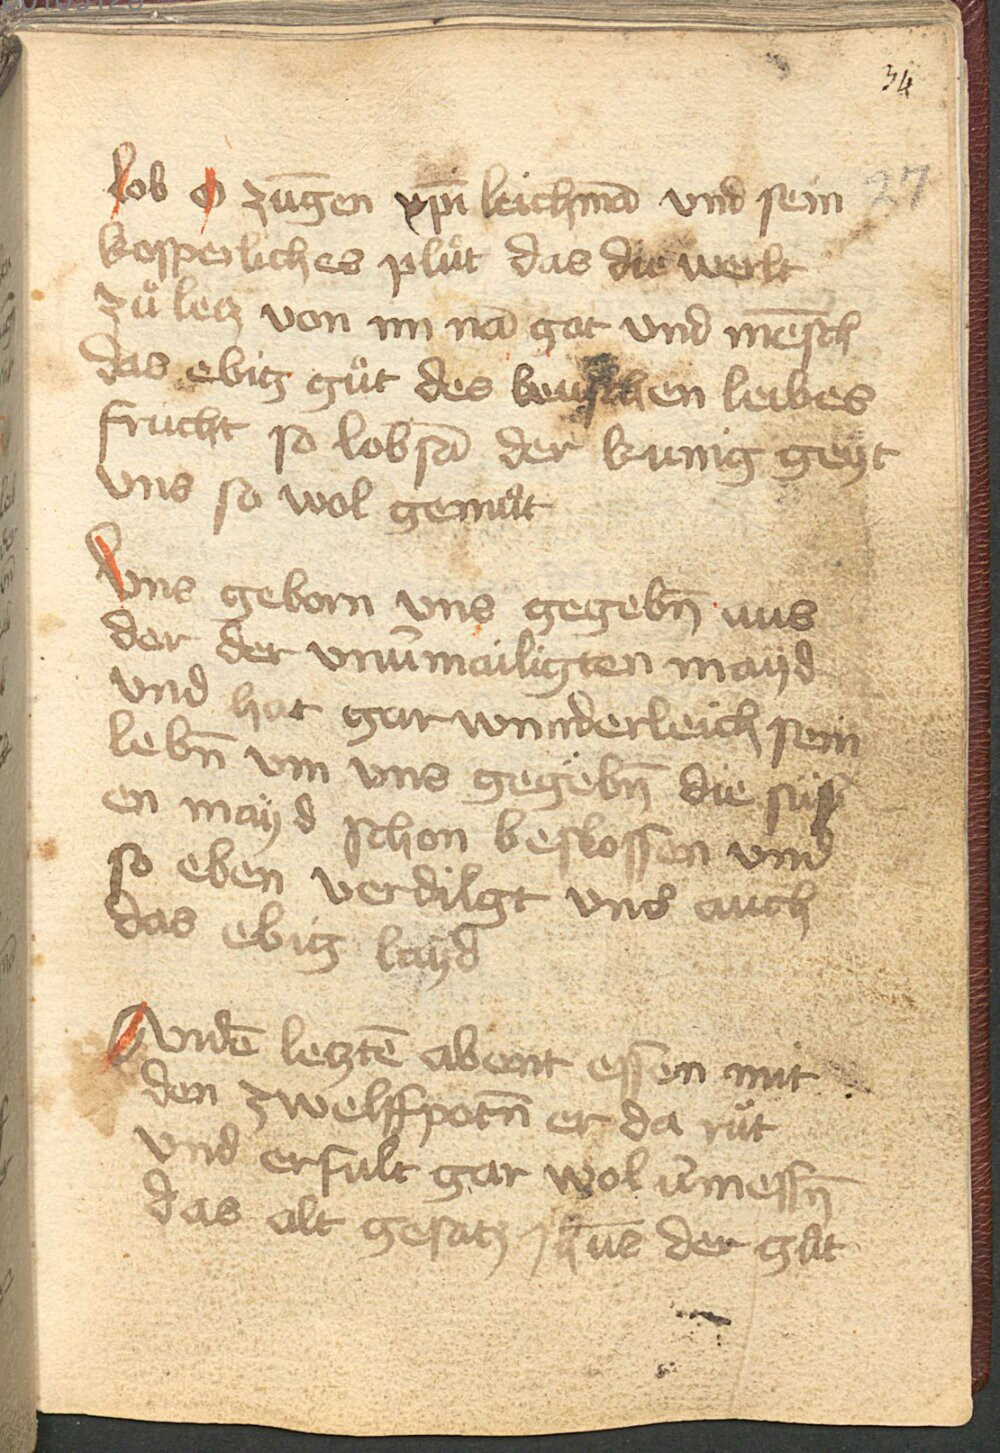 34
27
lob O zūgen xp̄i leichnā vnd sein
kosperliches plůt das die werlt
zů letz von im nā got vnd mēsch
das ebig gůt des keuschen leibes
frucht so lobsā der kunig geyt
vns so wol gemůt
Vns geborn vns gegebn̄ aus
der der vnūmailigten mayd
vnd hat gar wunderleich sein
lebn̄ vm vns gegebn̄ die süss
en mayd schon beslossen vnd
so eben verdilgt vns auch
das ebig layd
Andē letztē abent essen mit
den zwelffpotn̄ er da růt
vnd erfult gar wol ūmessn̄
das alt gesatz der gůt